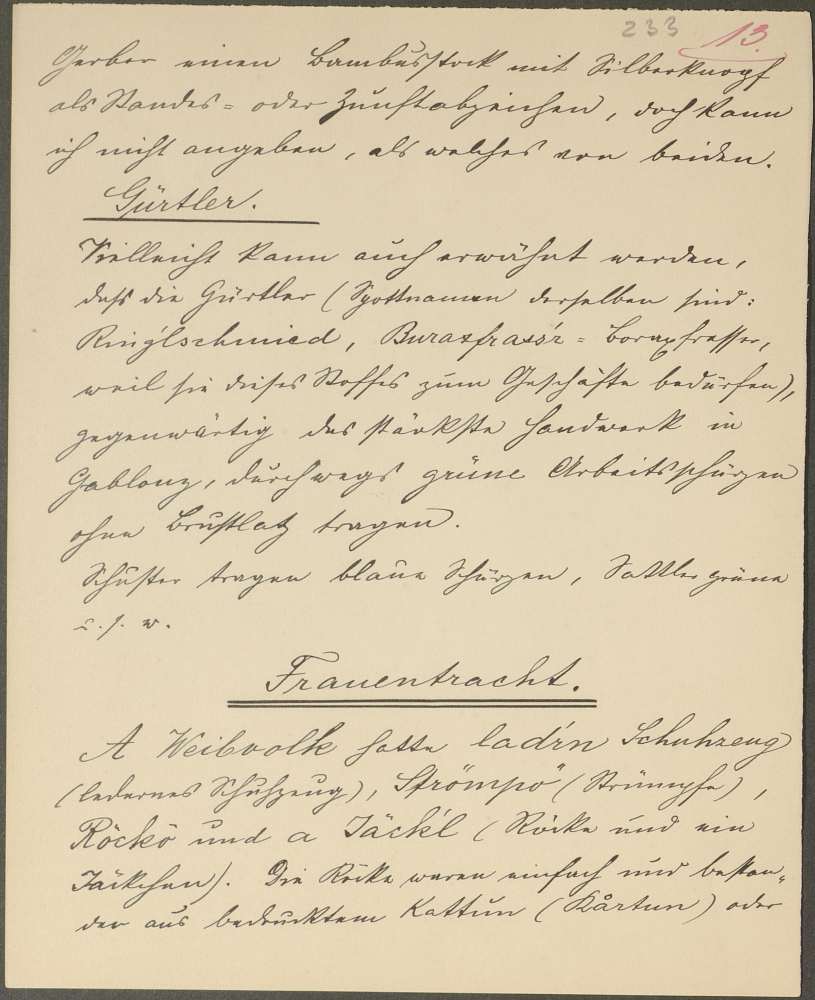 233 13.
Gerber einen Bambusstock mit Silberknopf
als Standes- oder Zunftabzeichen, doch kann
ich nicht angeben, als welches von beiden.
Gürtler.
Vielleicht kann auch erwähnt werden,
daß die Gürtler (Spottnamen derselben sind:
Ring'lschmied, Buraxfrass'r = Boraxfresser,
weil sie dieses Stoffes zum Geschäfte bedürfen),
gegenwärtig das stärkste Handwerk in
Gablonz, durchwegs grüne Arbeitsschürzen
ohne Brustlatz tragen.
Schuster tragen blaue Schürzen, Sattler grüne
u. s. w.
Frauentracht.
A Weibvolk hatte lad'rn Schuhzeug
(ledernes Schuhzeug), Strömpö (Strümpfe),
Röckö und a Jäck'l (Röcke und ein
Jäckchen). Die Röcke waren einfach und bestan-
den aus bedrucktem Kattun (Kårtun) oder